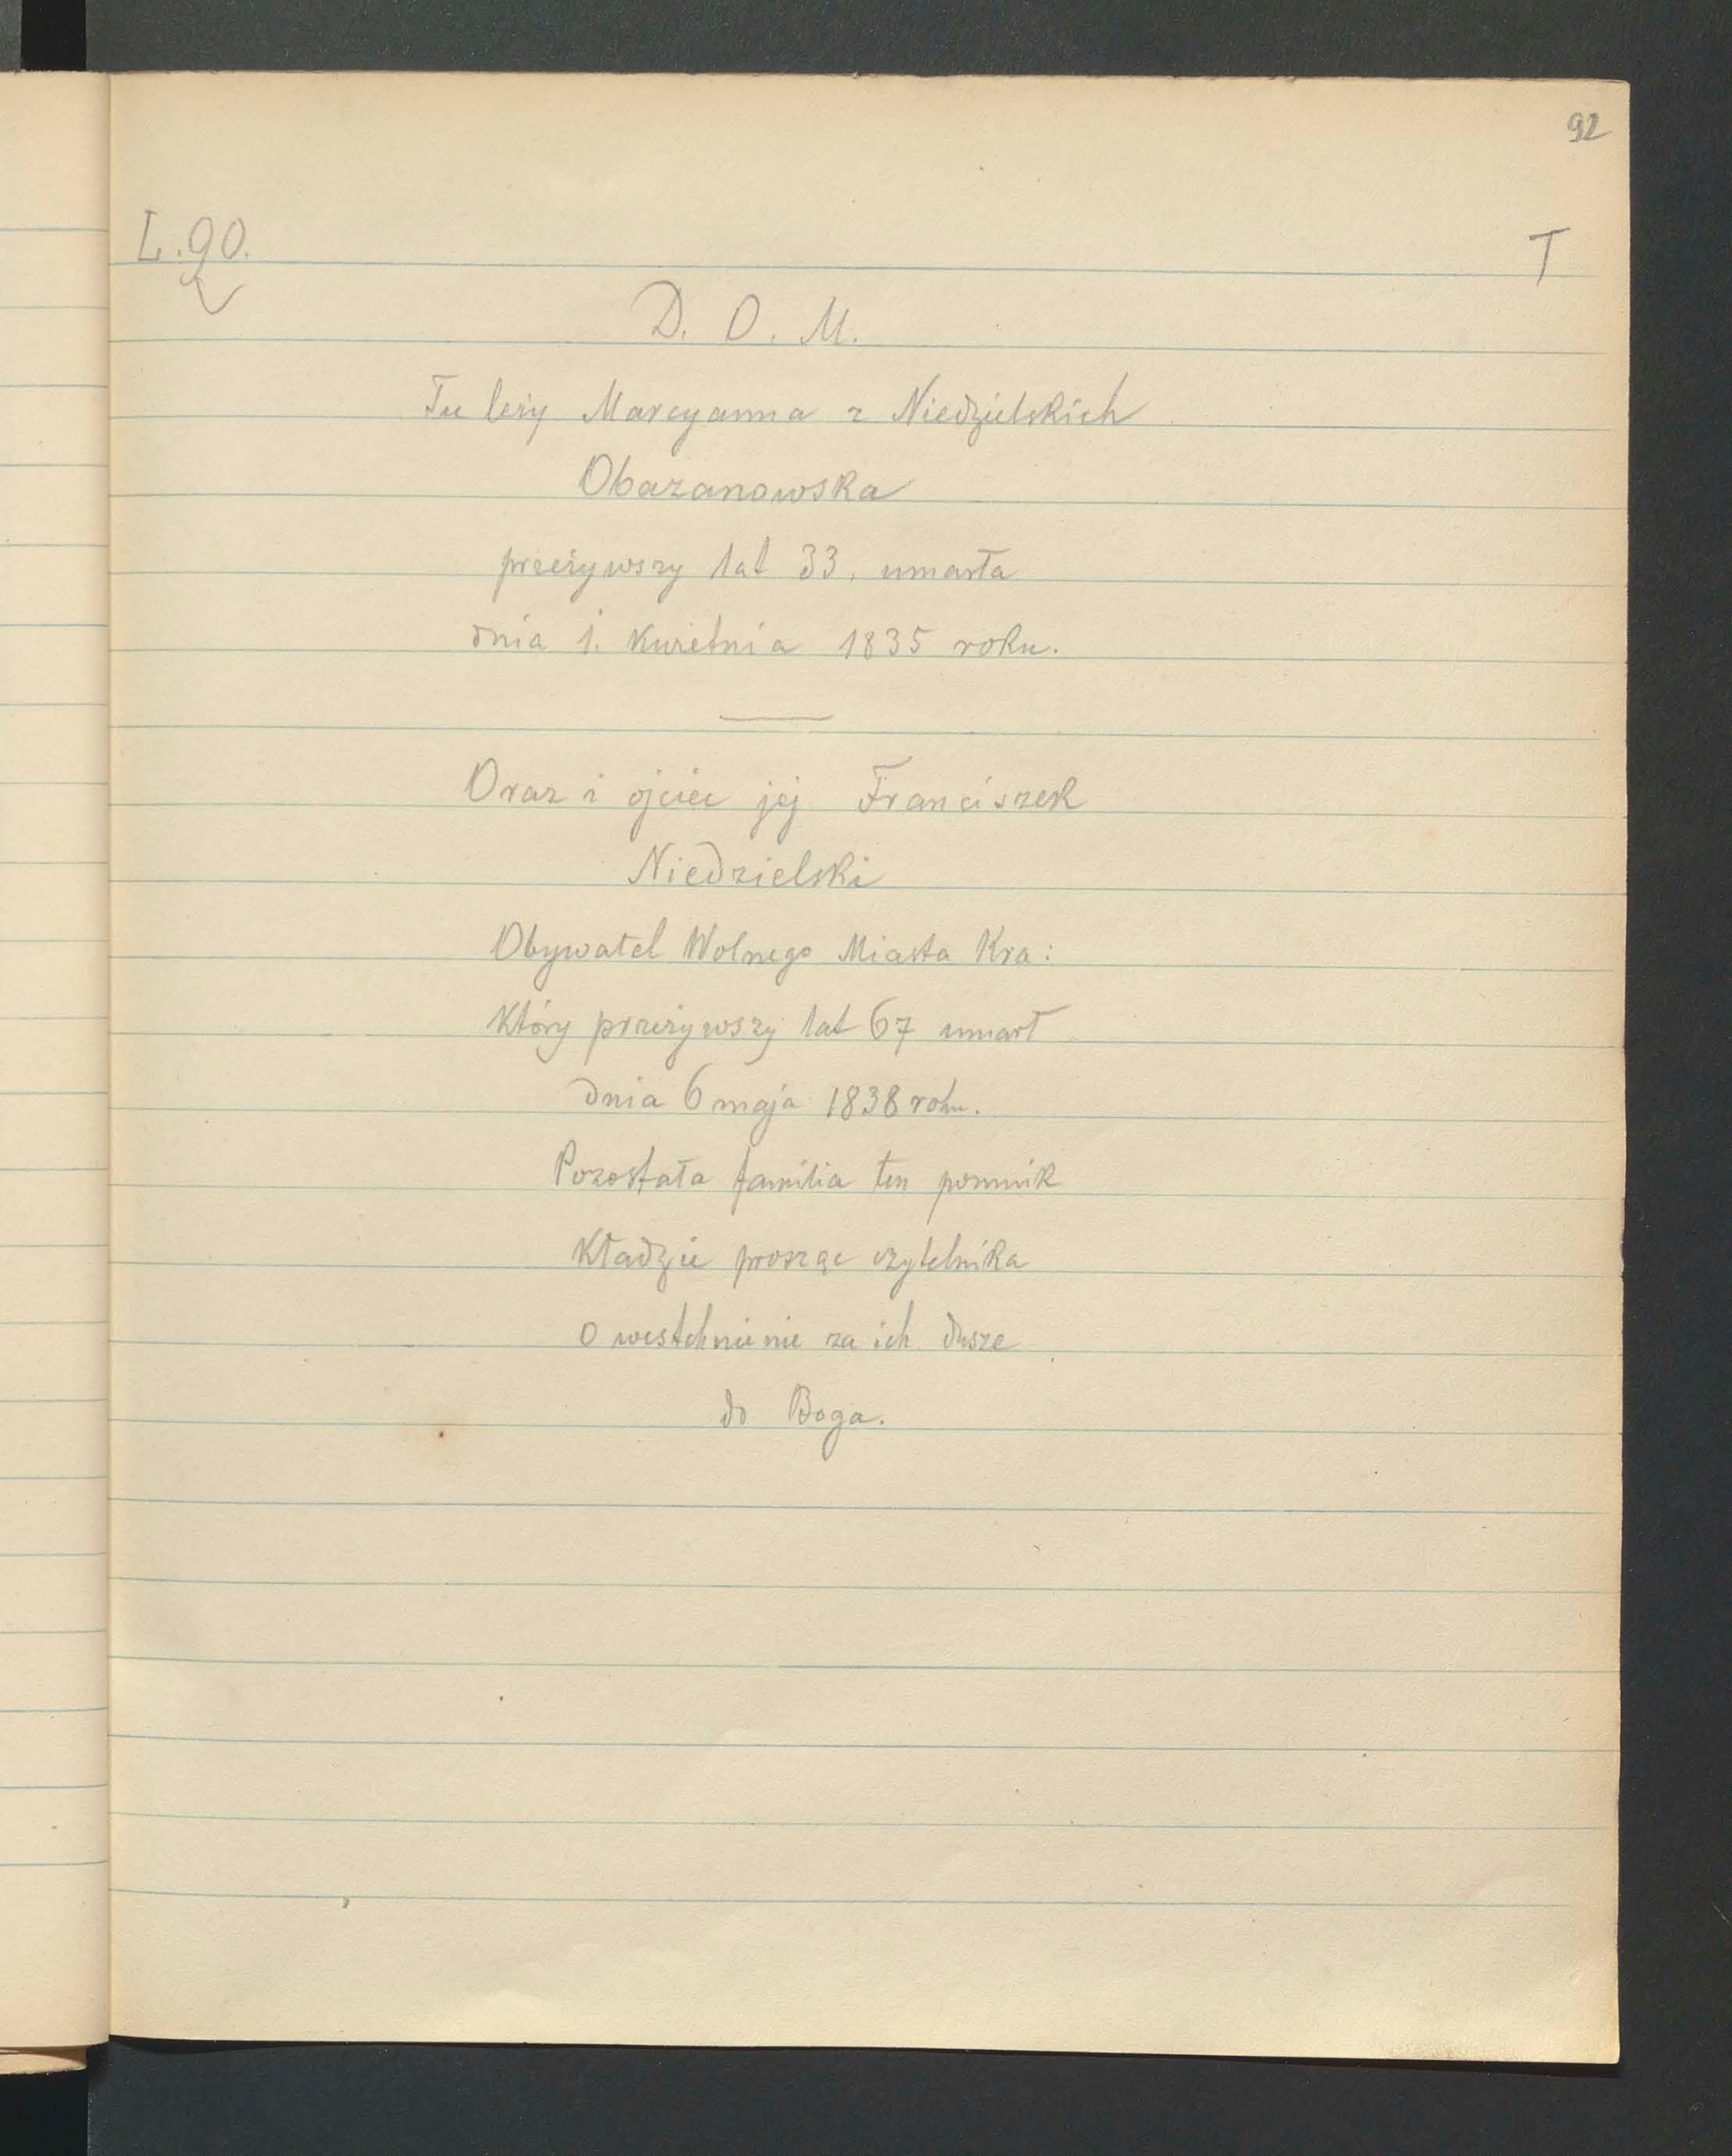 92
L. 90.
T
D. O. M.
Tu leży Marcyanna z Niedzielskich
Obazanowska
przeżywszy lat 33, umarła
dnia 1. Kwietnia 1835 roku.
Oraz i ojciec jej Franciszek
Niedzielski
Obywatel Wolnego Miasta Kra:
Który przeżywszy lat 67 umarł
dnia 6 maja 1838 roku.
Pozostała familia ten pomnik
Kładzie prosząc czytelnika
o westchnienie za ich dusze
do Boga.